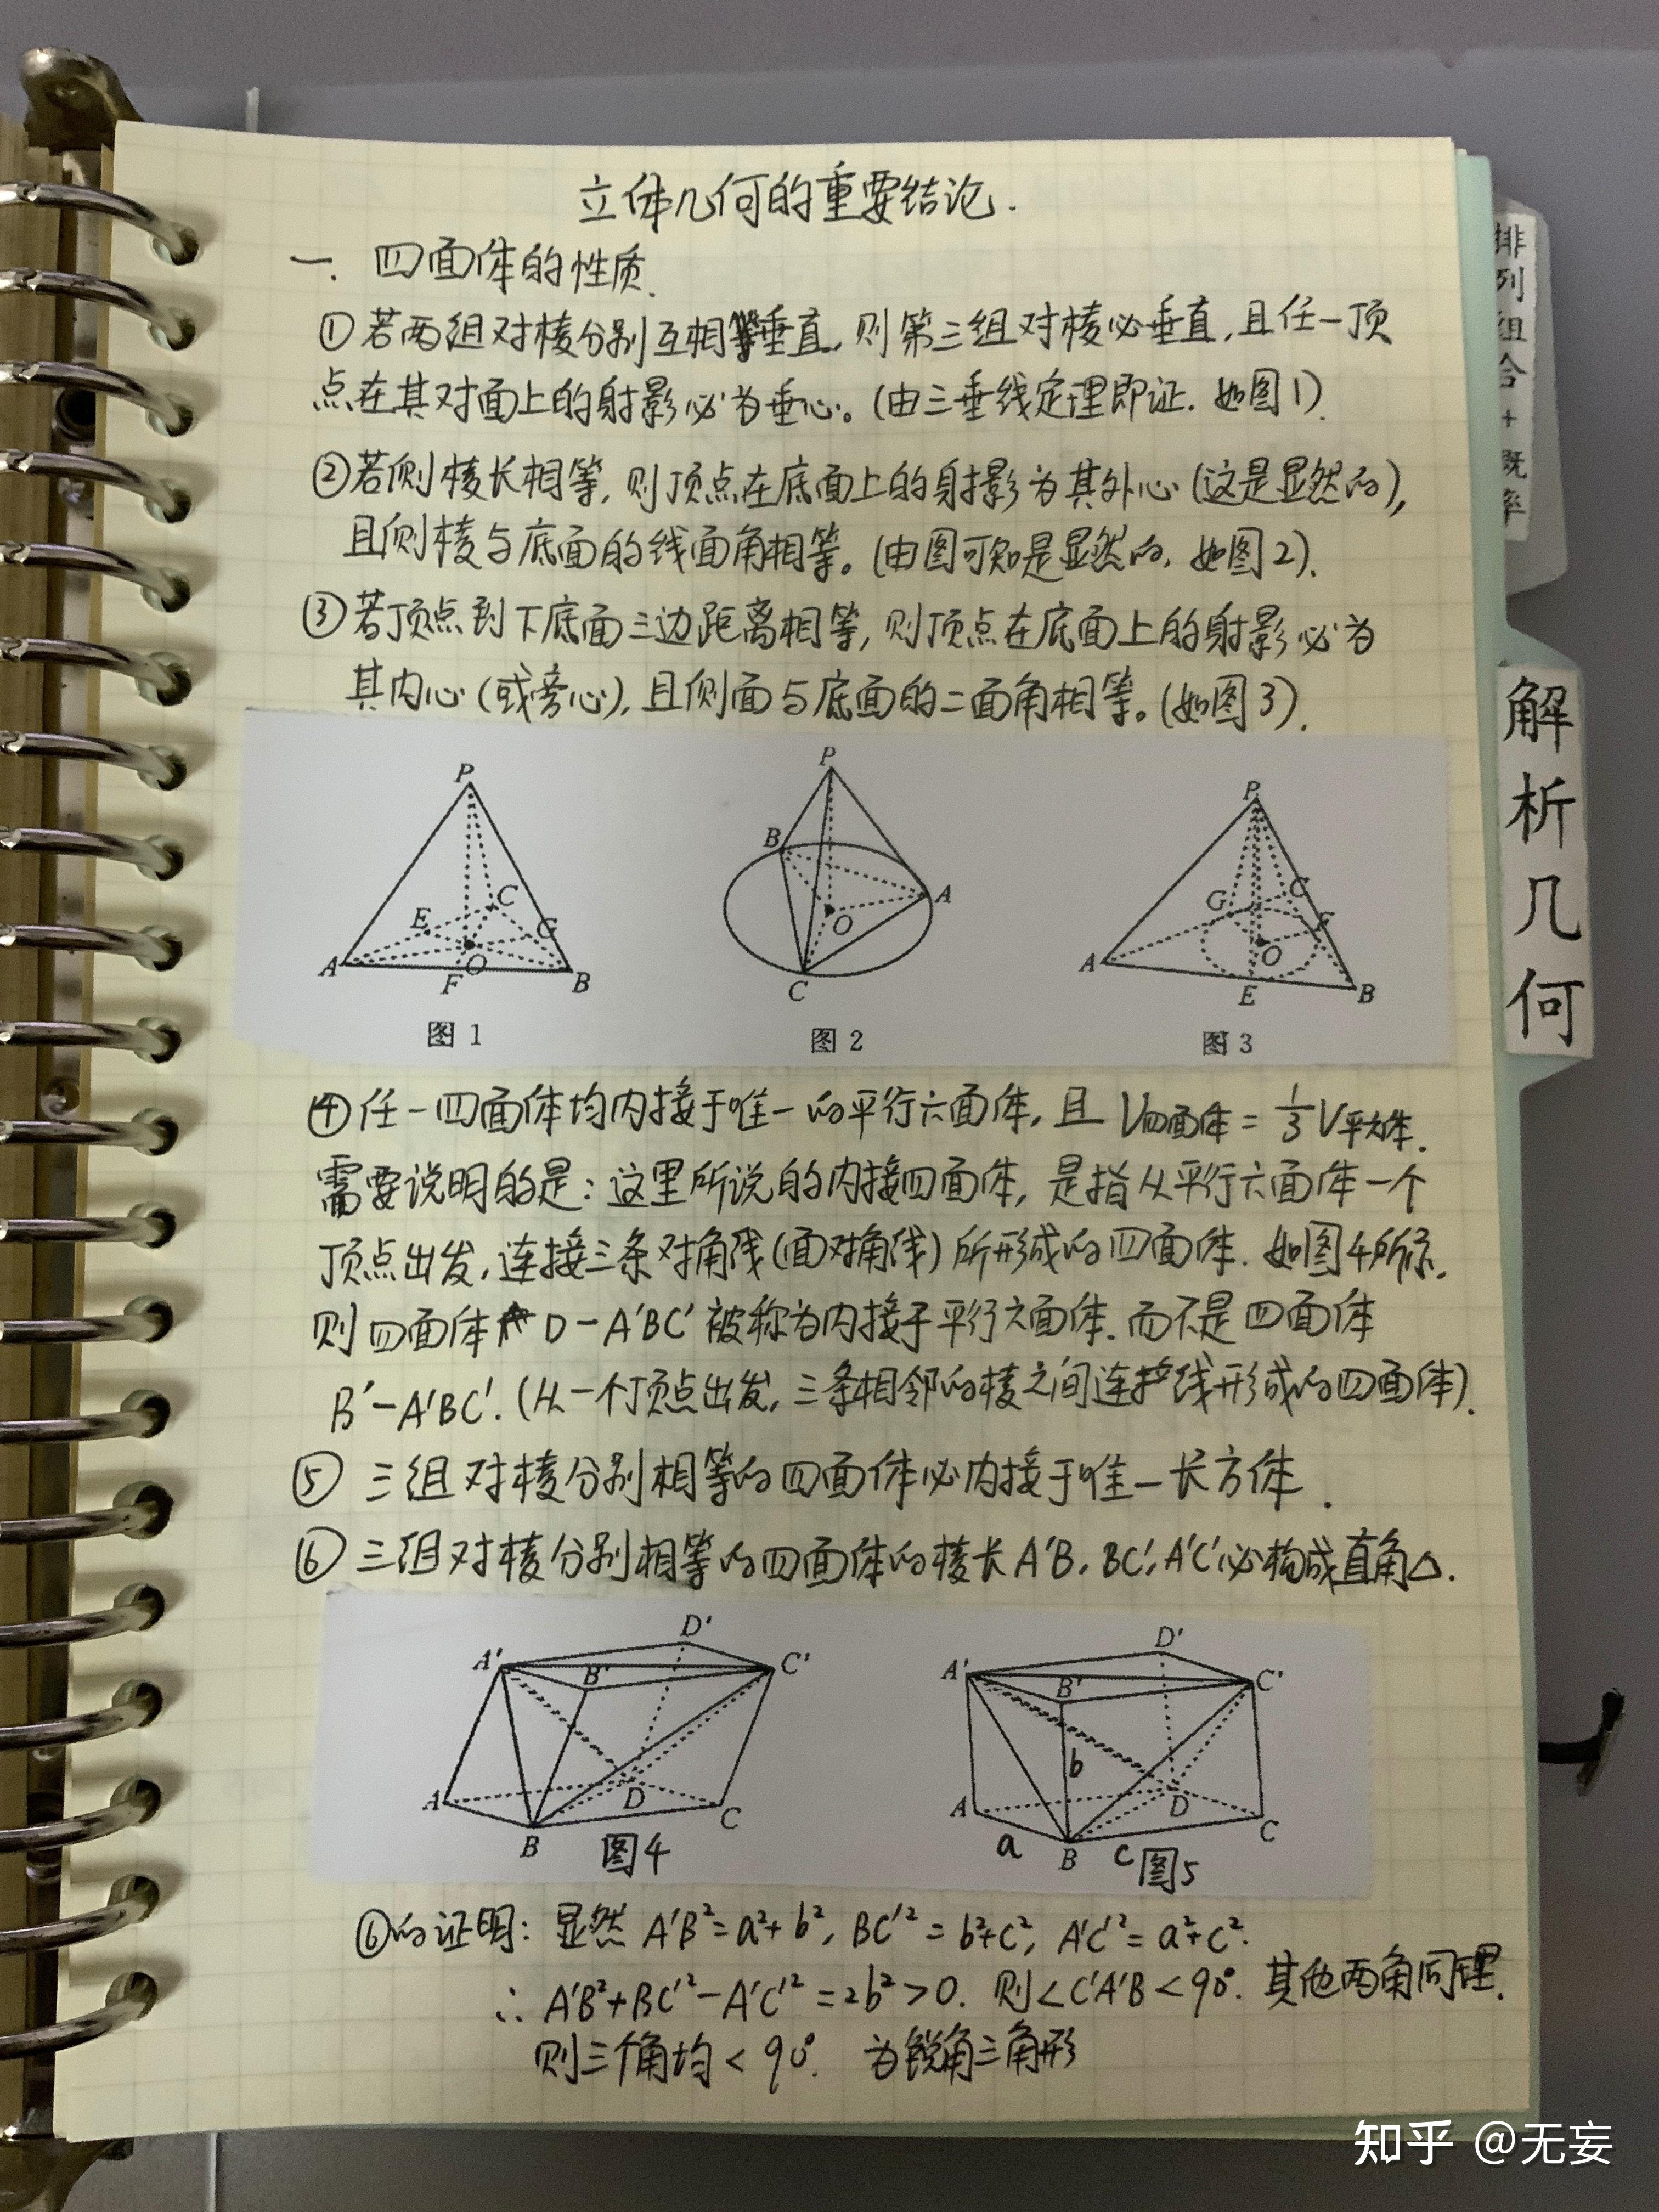 立体几何的重要结论.
一. 四面体的性质.
①若两组对棱分别互相垂直, 则第三组对棱必垂直, 且任一顶
点在其对面上的射影必为垂心。(由三垂线定理即证. 如图1).
②若侧棱长相等, 则顶点在底面上的射影为其外心(这是显然的),
且侧棱与底面的线面角相等。(由图可知是显然的, 如图2).
③若顶点到下底面三边距离相等, 则顶点在底面上的射影必为
其内心(或旁心), 且侧面与底面的二面角相等。(如图3).
P
A
B
C
E
F
G
O
图 1
P
B
A
O
C
图 2
P
G
C
F
A
O
E
B
图 3
④任一四面体均内接于唯一的平行六面体, 且 V四面体 = 1/3 V平六体.
需要说明的是: 这里所说的内接四面体, 是指从平行六面体一个
顶点出发, 连接三条对角线(面对角线)所形成的四面体. 如图4所示.
则四面体 D-A'BC' 被称为内接于平行六面体. 而不是四面体
B'-A'BC'. (从一个顶点出发, 三条相邻的棱之间连接线形成的四面体).
⑤ 三组对棱分别相等的四面体必内接于唯一长方体.
⑥ 三组对棱分别相等的四面体的棱长A'B, BC', A'C'必构成直角△.
D'
A'
B'
C'
A
D
B
C
图4
D'
A'
B'
C'
b
A
D
a
B
c
C
图5
⑥的证明: 显然 A'B²=a²+b², BC'²=b²+c², A'C'²=a²+c².
∴ A'B²+BC'²-A'C'²=2b²>0. 则∠C'A'B<90°. 其他两角同理.
则三个角均<90°. 为锐角三角形
排列组合+概率
解析几何
知乎 @无妄